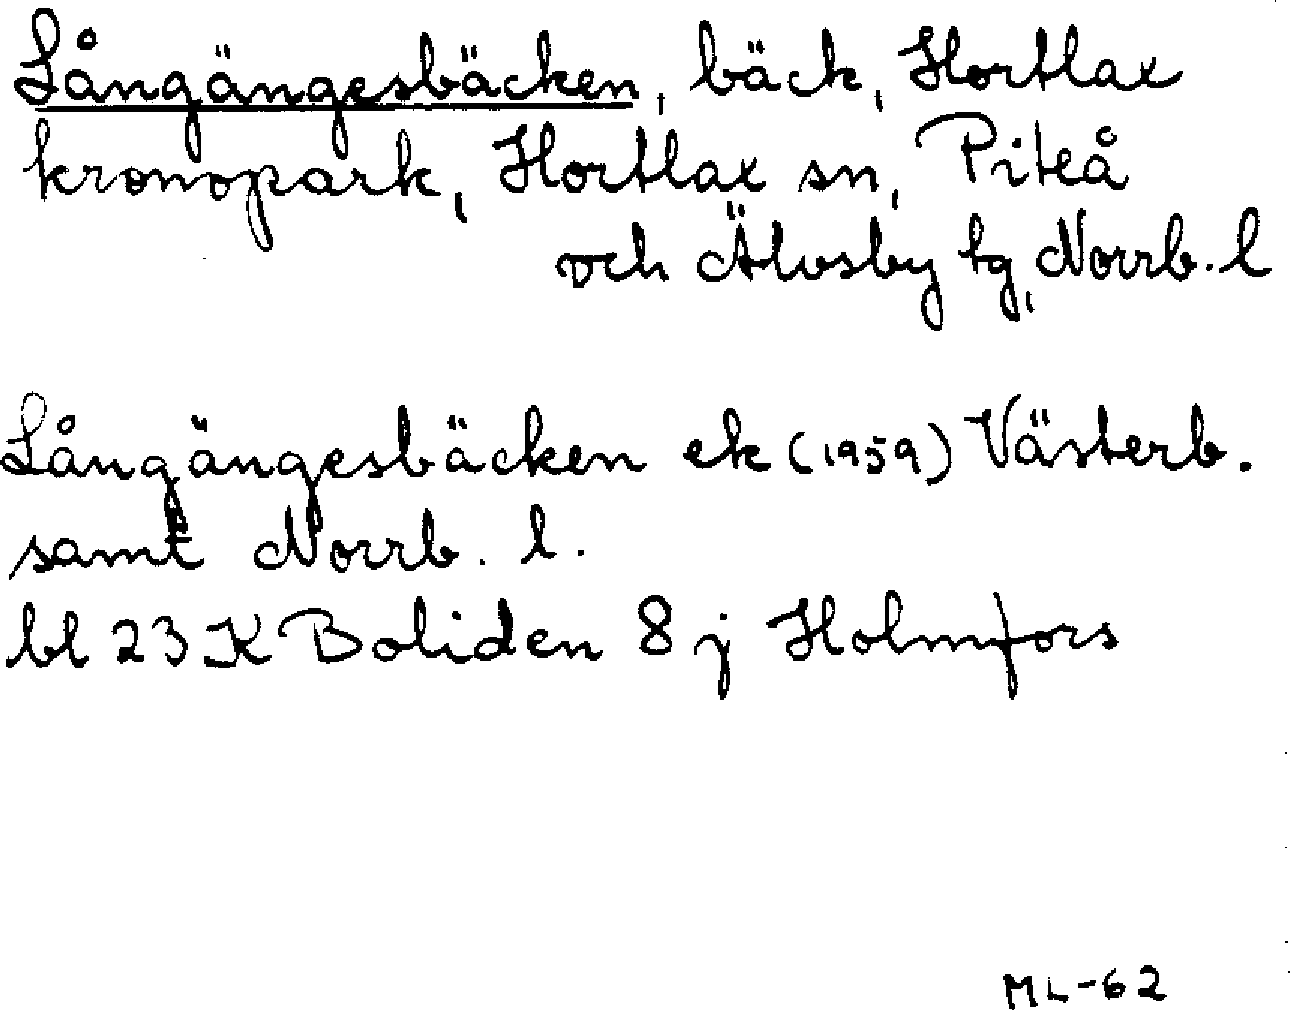 Långängesbäcken, bäck, Hortlax
kronopark, Hortlax sn, Piteå
och Älvsby tg, Norrb. l
Långängesbäcken ek (1959) Västerb.
samt Norrb. l.
bl 23 K Boliden 8 j Holmfors
ML-62